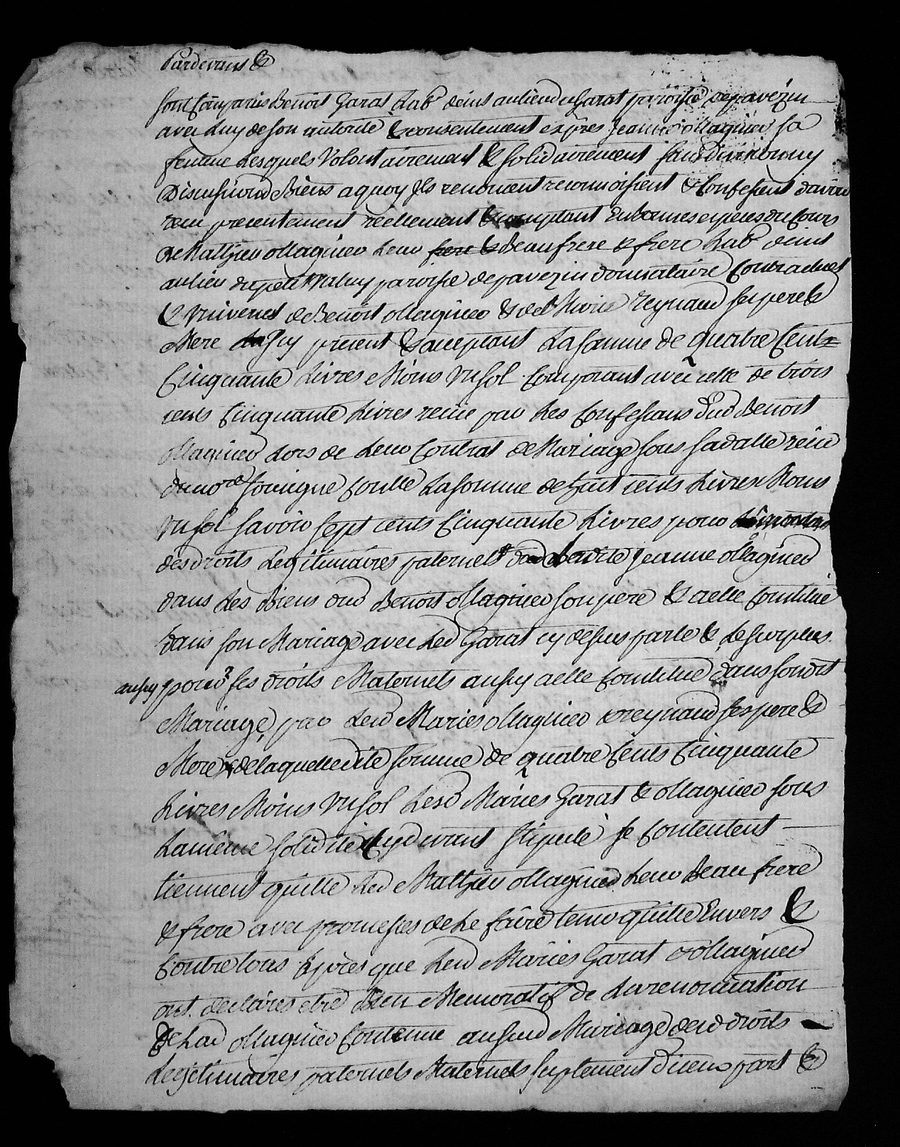 Pardevant &
sont comparus Benoit Garat lab^r deins au lieu de Garat paroisse de pavezin
avec luy de son autorité & consentement expres Jeanne ollagnier sa
femme lesquels volontairement & solidairement sans division ny
discussion de Biens a quoy ils renoncent reconnoissent & confessent davoir
receu presentement réellement & comptant en bonnes especes du Cours
de Mathieu ollagnier leur frere & Beaufrere & frere lab^r deins
au lieu du petit paroisse de pavezin donnataire Contractuel
& universel de Benoit ollagnier & de Marie Reynaud ses pere &
Mere icy present & acceptant la somme de quatre Cents
Cinquante livres Moins un sol Comprenant avec celle de trois
cents Cinquante livres reçüe par les Confessans dud Benoit
ollagnier lors de leur Contrat de Mariage sous sa datte reçu
du no^re soussigné Celle la somme de huit cents livres Moins
un sol savoir sept cents Cinquante livres pour
des droits legitimaires paternels de ladite Jeanne ollagnier
dans les Biens dud Benoit ollagnier son pere & a elle Constitué
dans son Mariage avec led Garat cy dessus parlé & le surplus
aussy pour ses droits Maternels aussy a elle Constitué dans son dit
Mariage par lesd Mariés ollagnier & reynaud ses pere &
Mere de laquelle dite somme de quatre Cents Cinquante
livres Moins un sol lesd Mariés Garat & ollagnier sous
la même solidité cy devant stipulé se Contentent
tiennent quitte led Mathieu ollagnier leur Beau frere
& frere avec promesses de le faire tenir quitte Envers &
Contre tous Apres que lesd Mariés Garat & ollagnier
ont declarés etre Bien Memoratif de la renonciation
de lad ollagnier Contenue aud Mariage desd droits
legitimaires paternels Maternels suplement diceux part &